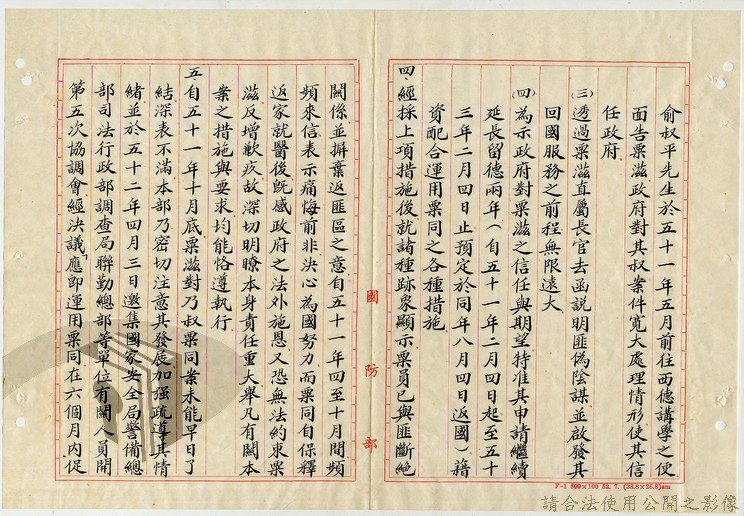 俞叔平先生於五十一年五月前往西德講學之便
面告栗滋政府對其叔案件寬大處理情形使其信
任政府
㈢透過栗滋直屬長官去函說明匪偽陰謀並啟發其
回國服務之前程無限遠大
㈣為示政府對栗滋之信任與期望特准其申請繼續
延長留德兩年（自五十一年二月四日起至五十
三年二月四日止預定於同年八月四日返國）藉
資配合運用栗同之各種措施
四、經採上項措施後就諸種跡象顯示栗員已與匪斷絕
國防部
關係並摒棄返匪區之意自五十一年四至十月間頻
頻來信表示痛悔前非決心為國努力而栗同自保釋
返家就醫後既感政府之法外施恩又恐無法約束栗
滋反增歉疚故深切明瞭本身責任重大舉凡有關本
案之措施與要求均能恪遵執行
五、自五十一年十月底栗滋對乃叔栗同案未能早日了
結深表不滿本部乃密切注意其發展加強疏導其情
緒並於五十二年四月三日邀集國家安全局警備總
部司法行政部調查局聯勤總部等單位有關人員開
第五次協調會經決議「應即運用栗同在六個月內促
F-1 800×100 52.7. (38.8×26.8)cm
請合法使用公開之影像